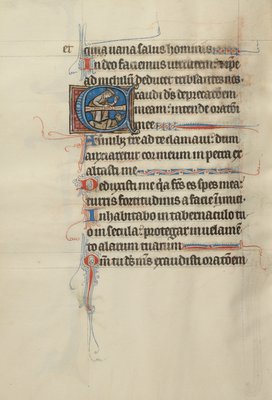 et
quia uana salus hominis
In deo faciemus uirtutem: et ipse
ad nichilum deducet tribulantes nos.
Exaudi ds deprecationem
meam: intende orationi
mee
A finibz terre ad te clamaui: dum
anxiaretur cor meum in petra ex
altasti me
Deduxisti me qa fcs es spes mea:
turris fortitudinis a facie inimici.
Inhabitabo in tabernaculo tu
o in secula: protegar in uelamen
to alarum tuarum
Qm tu ds ms exaudisti orationem